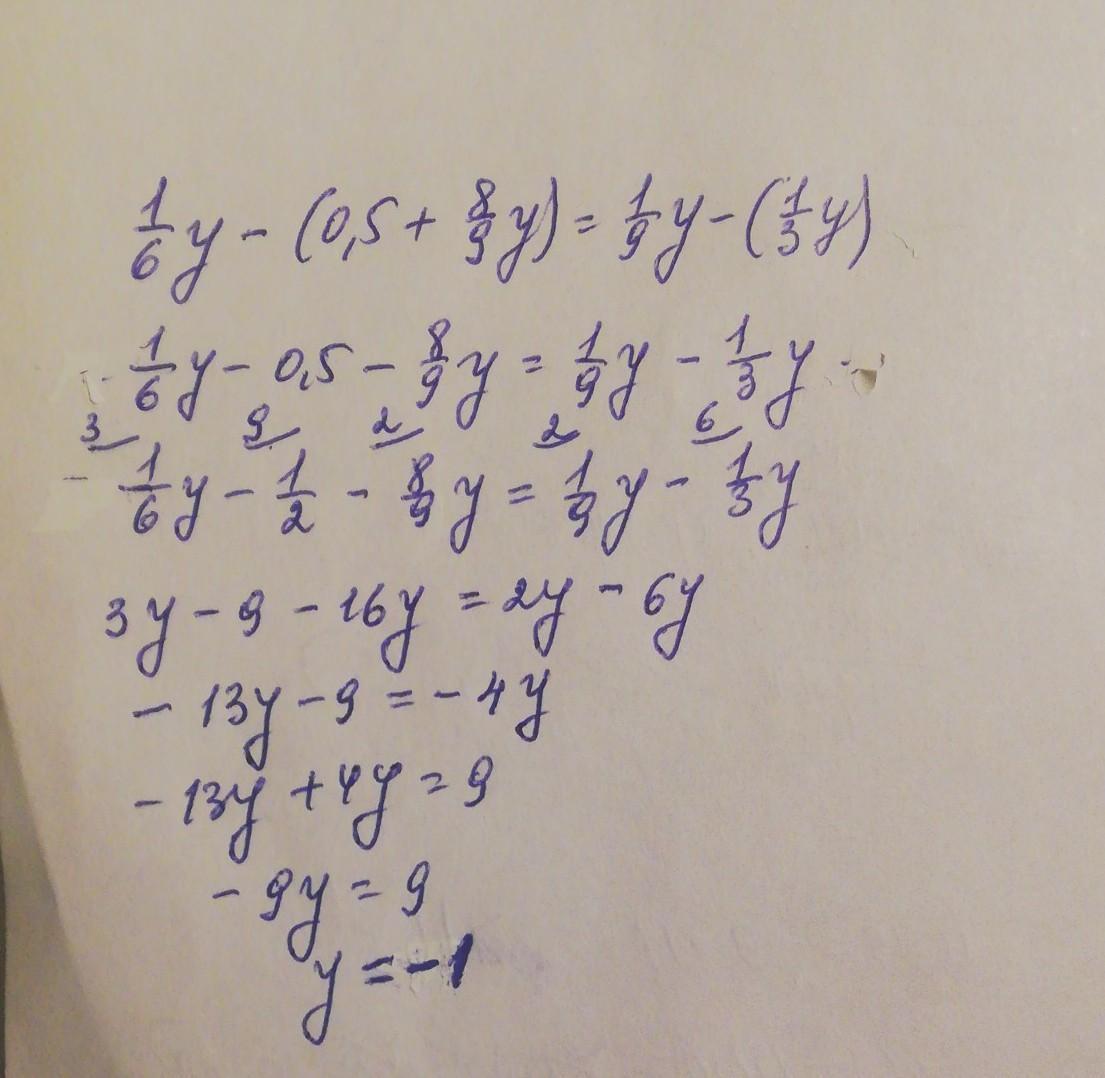 1/6 y - (0,5 + 8/9 y) = 1/9 y - (1/3 y)
1/6 y - 0,5 - 8/9 y = 1/9 y - 1/3 y
3 9 2 2 6
- 1/6 y - 1/2 - 8/9 y = 1/9 y - 1/3 y
3y - 9 - 16y = 2y - 6y
- 13y - 9 = - 4y
- 13y + 4y = 9
- 9y = 9
y = -1